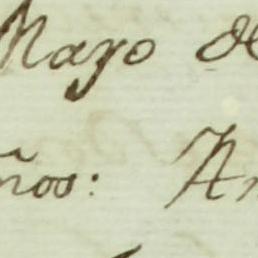 Mayo de
ños: An